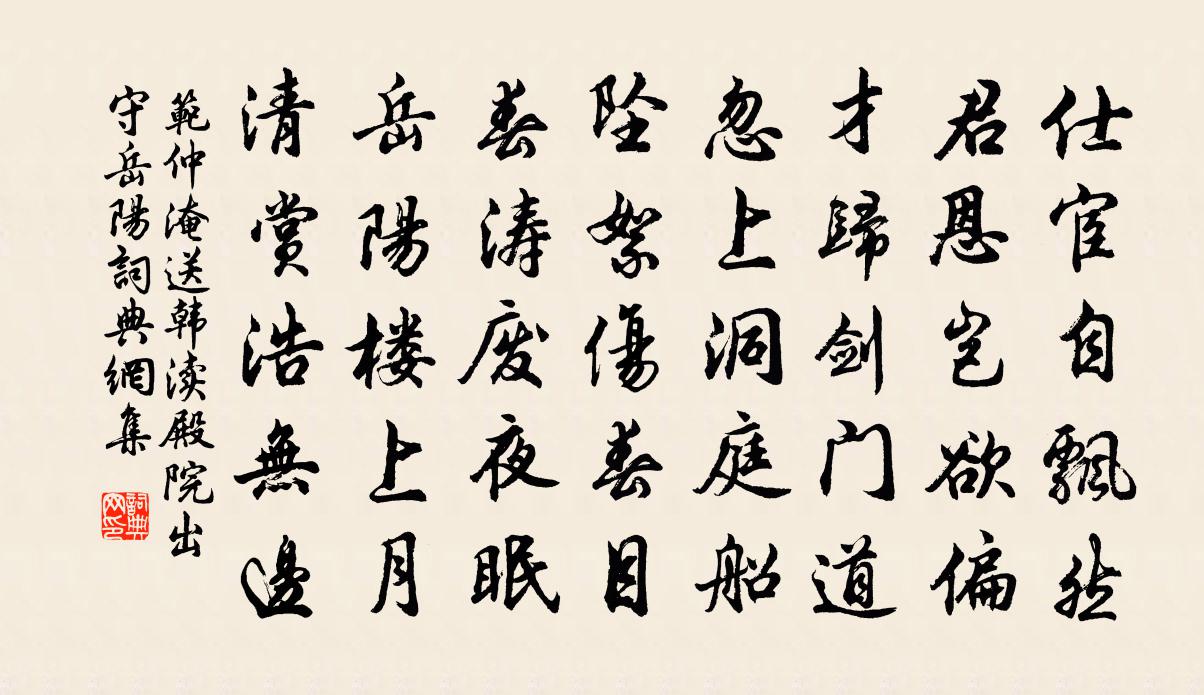 仕宦自飄然
君恩岂欲偏
才歸剑门道
忽上洞庭船
坠絮傷春目
春涛废夜眠
岳陽楼上月
清賞浩無邊
範仲淹送韩渎殿院出
守岳陽詞典網集
詞典
网印